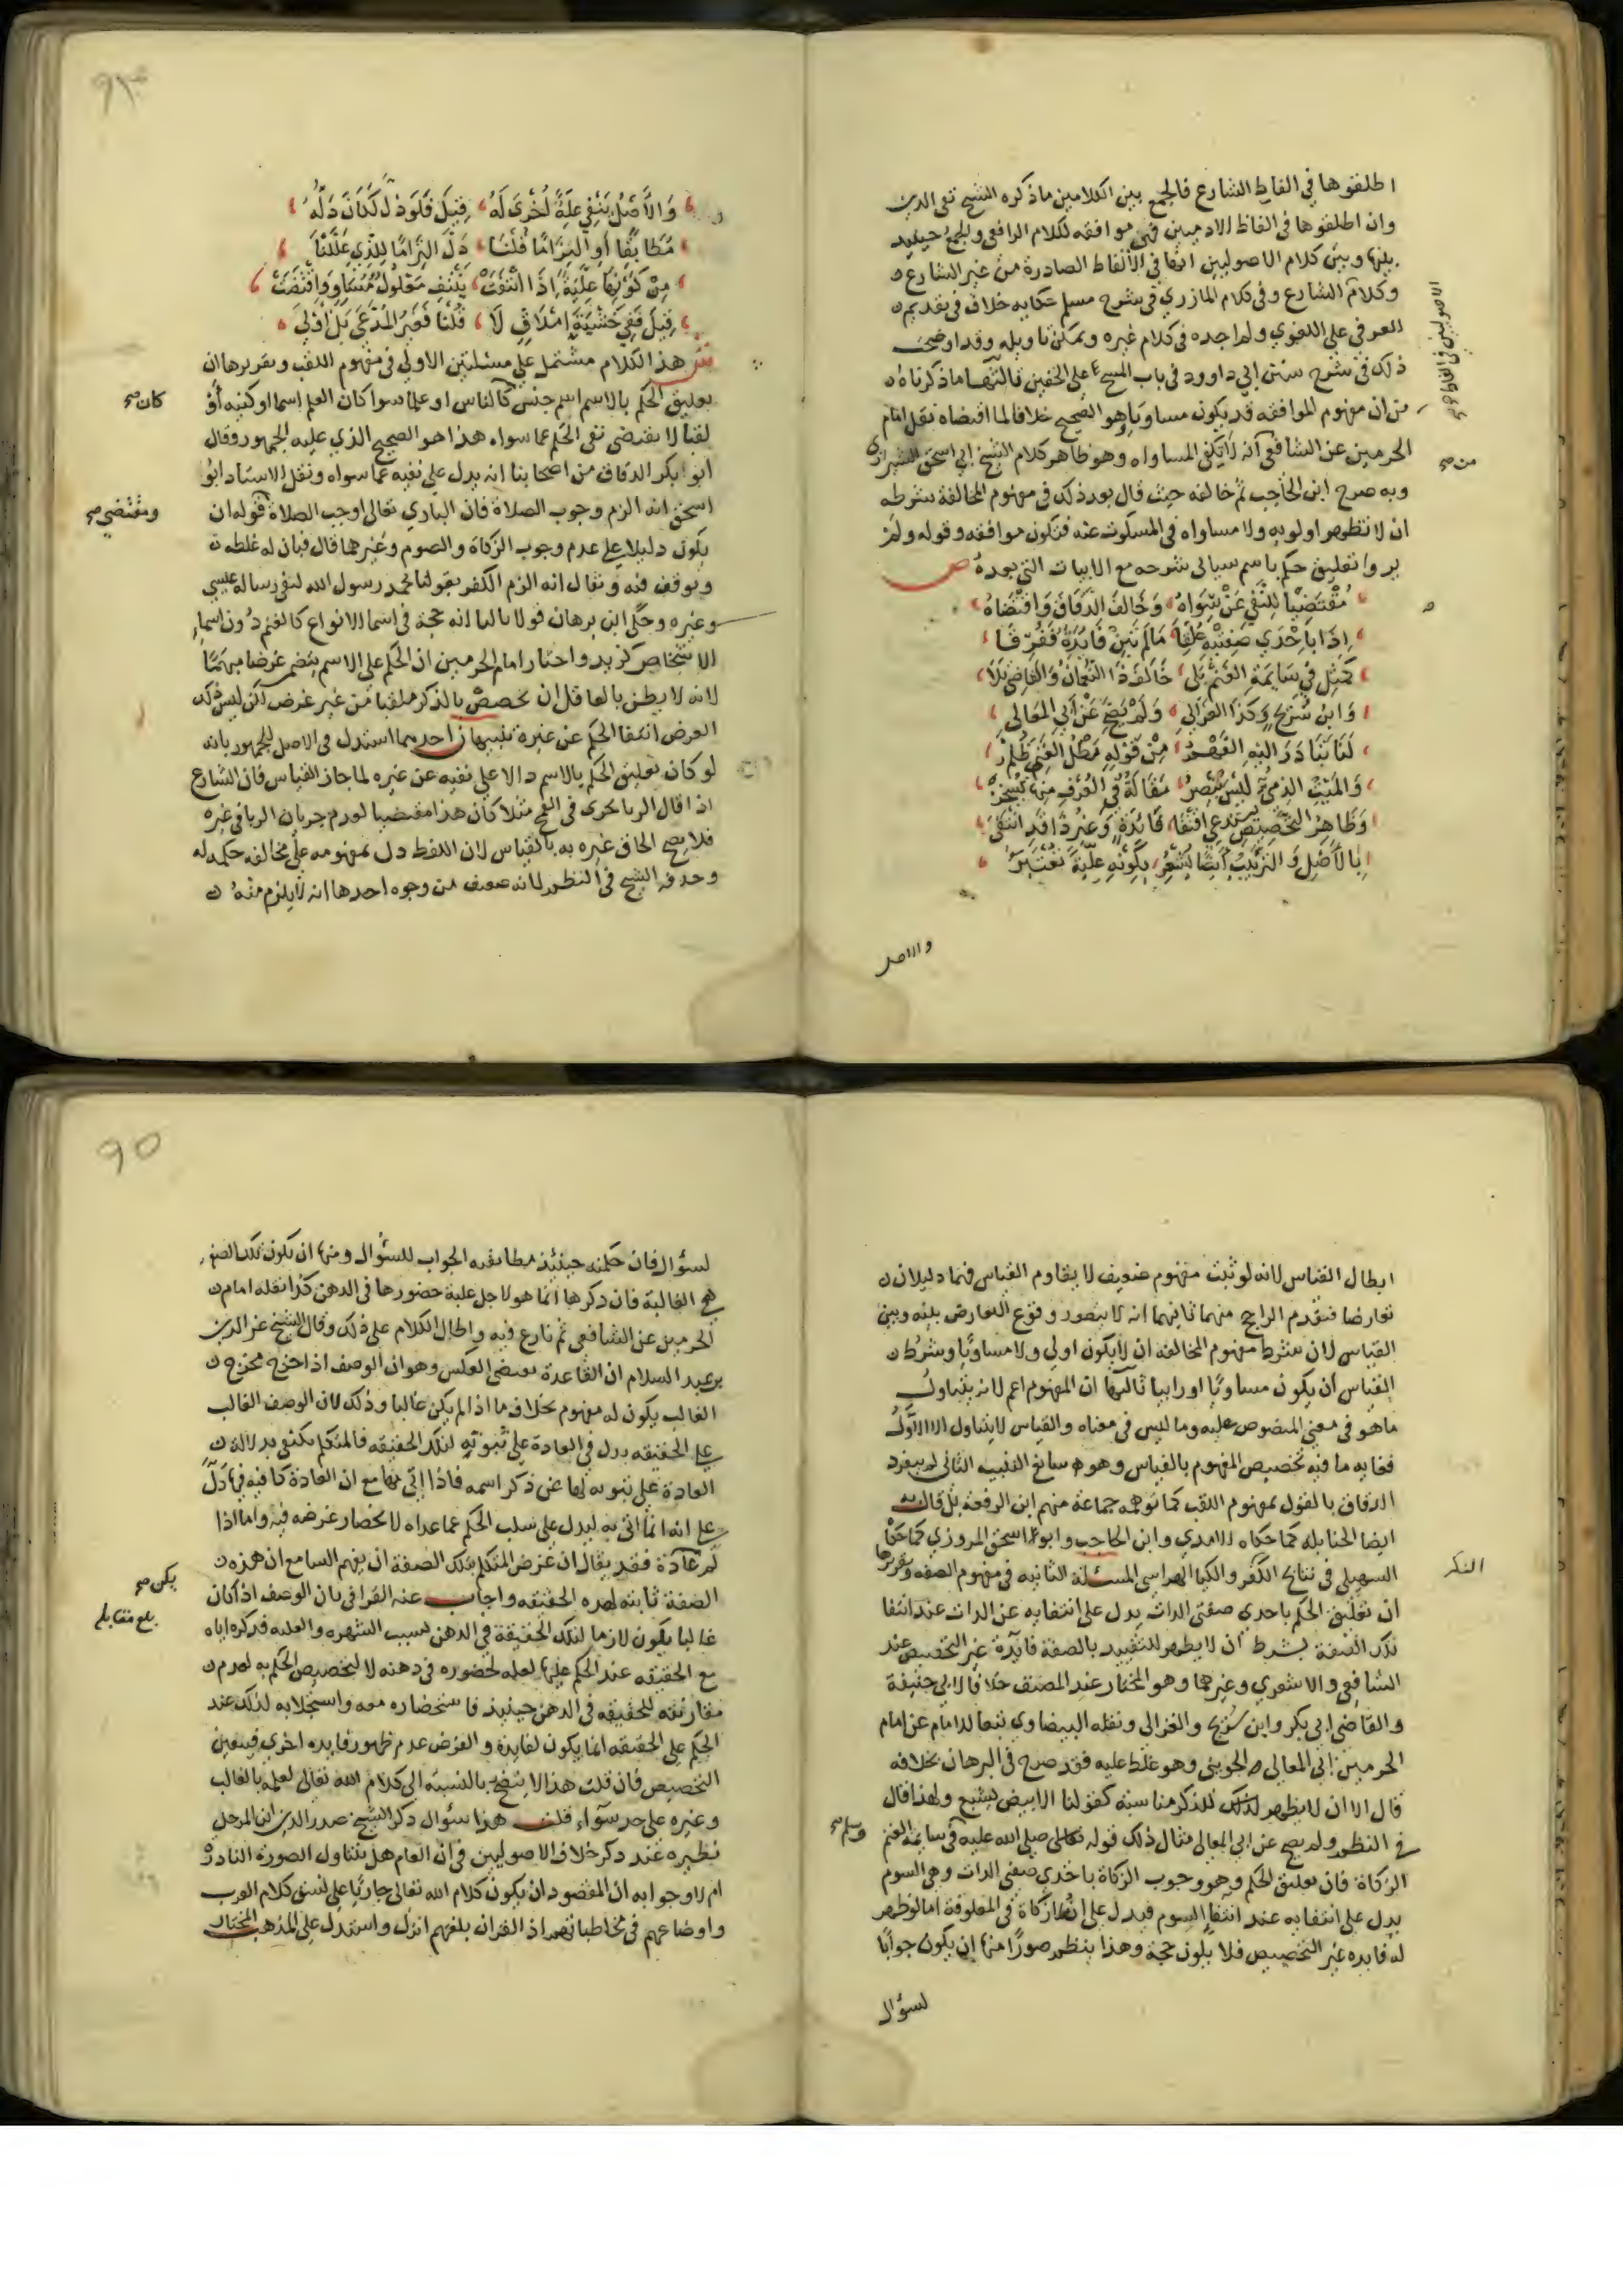 اطلقوها في الفاظ الشارع فالجمع بين الكلامين ما ذكره الشيخ تقي الدين
وان اطلقوها في الفاظ الادميين فهي موافقه لكلام الرافعي والجمع حينيد
بينها وبين كلام الاصوليين انها في الألفاظ الصادرة من غير الشارع
وكلام الشارع وفي كلام المازري في شرح مسلم حكايه خلاف في تقديم
العرفي على اللغوي ولم اجده في كلام غيره ويمكن تاويله وقد اوضحت
ذلك في شرح سنن ابي داوود في باب المسح على الخفين ثالثها ما ذكرناه
من ان مفهوم الموافقه قد يكون مساويا هو الصحيح خلافا لما اقتضاه نقل امام
الحرمين عن الشافعي انه لا يكفي المساواه وهو ظاهر كلام الشيخ ابي اسحق الشيرازي
وبه صرح ابن الحاجب ثم خالفه حيث قال بعد ذلك في مفهوم المخالفة شرطه
ان لا تظهر اولويه ولا مساواه في المسكوت عنه فتكون موافقه وقوله ولم
يروا تعليق حكم باسم سياتي شرحه مع الابيات التي بعده ص
مُقْتَضِيًا لِلنَّفْيِ عَنْ سِوَاهُ وَخَالَفَ الدَّقَّاقُ وَاقْتَضَاهُ
اِذَا بِاِحْدَي صِفَتَيْهِ عُلِّقَا مَالَمْ تَبِنْ فَائِدَةٌ فَفُرِّقَا
كَمِثْلِ فِي سَايِمَةِ الغَنَمْ بَلَى خَالَفَ ذَا النُّعْمَانُ وَالقَاضِي بَلَا
وَابْنُ سُرَيْجٍ وَكَذَا الغَزَالِي وَلَمْ يَصِحَّ عَنْ اَبِي المَعَالِي
لَنَا تَبَادَرَ اِلَيْهِ الفَهْمُ مِنْ قَوْلِهِ مَطْلُ الغَنِيِّ ظُلْمُ
وَالمَيِّتُ الذِّمِّيُّ لَيْسَ يُبْصِرُ مَقَالَةٌ فِي العُرْفِ مِنْهَا يُسْخَرُ
وَظَاهِرُ التَّخْصِيصِ يَسْتَدْعِي اقْتِفَا فَائِدَةٍ وَغَيْرُ ذَا قَدِ انْتَفَى
بِالأَصْلِ وَالتَّرْتِيبُ اَيْضًا يُشْعِرُ بِكَوْنِهِ عِلِّيَّةً تُعْتَبَرُ
والاصل
وَالأَصْلُ يَنْفِي عِلَّةً أُخْرَى لَهُ قِيلَ فَلَوْ دَلَّ لَكَانَ دَلَّهُ
مُطَابِقًا أَوِ التِزَامًا قُلْنَا دَلَّ التِزَامًا لِلَّذِي عَلَّلْنَا
مِنْ كَوْنِهَا عِلِّيَّةً اِذَا انْتَفَتْ يَنْتَفِ مَعْلُولٌ مُسَاوٍ وَاقْتَضَتْ
قِيلَ فَفِي خَشْيَةَ اِمْلَاقٍ لَا قُلْنَا فَغَيْرُ المُدَّعَى بَلْ أَوْلَى
ش هذا الكلام مشتمل على مسئلتين الاولى في مفهوم اللقب وتقريرها ان
تعليق الحكم بالاسم اسم جنس كالناس او علما سوا كان العلم اسما او كنيه أو
لقبا لا يقتضى نفي الحكم عما سواه هذا هو الصحيح الذي عليه الجمهور وقال
ابو بكر الدقاق من اصحابنا انه يدل على نفيه عما سواه ونقل الاستاد ابو
اسحق انه الزم وجوب الصلاة فان الباري تعالى اوجب الصلاة قوله ان
يكون دليلا على عدم وجوب الزكاة والصوم وغيرهما قال فبان له غلطه
وتوقف فيه ويقال انه الزم الكفر بقولنا محمد رسول الله لنفي رساله عيسي
وغيره وحكى ابن برهان قولا ثالثا انه حجة في اسما الانواع كالغنم دون اسما
الاشخاص كزيد واختار امام الحرمين ان الحكم على الاسم يتضمن غرضا مبهما
لانه لا يظن بالعاقل ان يخصص بالذكر ملقبا من غير غرض لكن ليس ذلك
الغرض انتفا الحكم عن غيره تنبيهان احدهما استدل في الاصل للجمهور بانه
لو كان تعليق الحكم بالاسم دالا على نفيه عن غيره لما جاز القياس فان الشارع
اذا قال الربا يجرى في القمح مثلا كان هذا مقتضيا لعدم جريان الربا في غيره
فلا يصح الحاق غيره به بالقياس لان اللفظ دل بمفهومه على مخالفه حكمه له
وحذفه الشيخ في النظم لانه ضعيف من وجوه احدها انه لا يلزم منه
ابطال القياس لانه لو ثبت مفهوم ضعيف لا يقاوم القياس فهما دليلان
تعارضا فيقدم الراجح منهما ثانيهما انه لا يتصور وقوع التعارض بينه وبين
القياس لان شرط مفهوم المخالفه ان لا يكون اولى ولا مساويا وشرط
القياس ان يكون مساويا او رابيا ثالثها ان المفهوم اعم لانه يتناول
ماهو في معني المنصوص عليه وما ليس في معناه والقياس لا يتناول الا الاوّل
فغايه ما فيه تخصيص المفهوم بالقياس وهو سائغ التنبيه الثاني لم ينفرد
الدقاق بالقول بمفهوم اللقب كما توهمه جماعة منهم ابن الرفعة بل قال به
ايضا الحنابله كما حكاه الامدي وابن الحاجب وابو اسحق المروزي كما حكاه
السهيلي في نتائج الفكر والكيا الهراسي المسئلة الثانيه في مفهوم الصفه وتقريرها
ان تعليق الحكم باحدى صفتي الذات يدل على انتفايه عن الذات عند انتفا
تلك الصفة بشرط ان لا يظهر للتقييد بالصفة فائدة غير التخصيص عند
الشافعي والاشعري وغيرهما وهو المختار عند المصنف خلافا لابي حنيفة
والقاضي ابي بكر وابن سريج والغزالى ونقله البيضاوي تبعا للامام عن امام
الحرمين ابي المعالي الجويني وهو غلط عليه فقد صرح في البرهان بخلافه
قال الا ان لا يظهر لذلك للذكر مناسبه كقولنا الابيض يشبع ولهذا قال
في النظم ولم يصح عن ابي المعالي مثال ذلك قوله صلى الله عليه في سايمة الغنم
الزكاة فان تعليق الحكم وهو وجوب الزكاة باحدي صفتي الذات وهي السوم
يدل على انتفايه عند انتفا السوم فيدل على انه لا زكاة في المعلوفة اما لو ظهر
له فايده غير التخصيص فلا يكون حجة وهذا ينظم صورًا منها ان يكون جوابًا
لسؤال
لسؤال فان حكمته حينئذ مطابقه الجواب للسؤال ومنها ان تكون تلك الصفه
هي الغالبة فان ذكرها انما هو لاجل غلبة حضورها في الذهن كذا نقله امام
الحرمين عن الشافعي ثم نازع فيه واطال الكلام على ذلك وقال الشيخ عز الدين
بن عبد السلام ان القاعدة تقتضى العكس وهو ان الوصف اذا خرج مخرج
الغالب يكون له مفهوم بخلاف ما اذا لم يكن غالبا وذلك لان الوصف الغالب
على الحقيقه يدل في العادة على ثبوته لتلك الحقيقه فالمتكلم يكتفى بدلالة
العادة على ثبوته لها عن ذكر اسمه فاذا اتى بها مع ان العادة كافيه فيها دلّ
على انه انما اتى به ليدل على سلب الحكم عما عداه لانحصار غرضه فيه واما اذا
لم عادة فقد يقال ان غرض المتكلم بتلك الصفة ان يفهم السامع ان هذه
الصفة ثابته لهذه الحقيقه واجاب عنه القرافي بان الوصف اذا كان
غالبا يكون لازما لتلك الحقيقة في الذهن بسبب الشهره والغلبه فذكره اياه
مع الحقيقه عند الحكم عليها لعله لحضوره في ذهنه لا لتخصيص الحكم به لعدم
مقارنته للحقيقه في الذهن حينيد فاستحضاره معه واستجلابه لذلك عند
الحكم على الحقيقه انما يكون لفايدة والفرض عدم ظهور فايده اخري فيتعين
التخصيص فان قلت هذا لا يتضح بالنسبه الى كلام الله تعالى لعلمه بالغالب
وغيره على حد سواء قلت هذا سؤال ذكر الشيخ صدر الدين ابن المرحل
نظيره عند ذكر خلاف الاصوليين في ان العام هل يتناول الصوره النادرة
ام لا وجوابه ان المقصود ان يكون كلام الله تعالى جاريًا على نسق كلام العرب
واوضاعهم في مخاطباتهم اذ القران بلغتهم انزل واستدل على المذهب المختار
من صح
كان صح
ومقتضى صح
الفكر
وسلم صح
يكن صح
بلغ مقابله